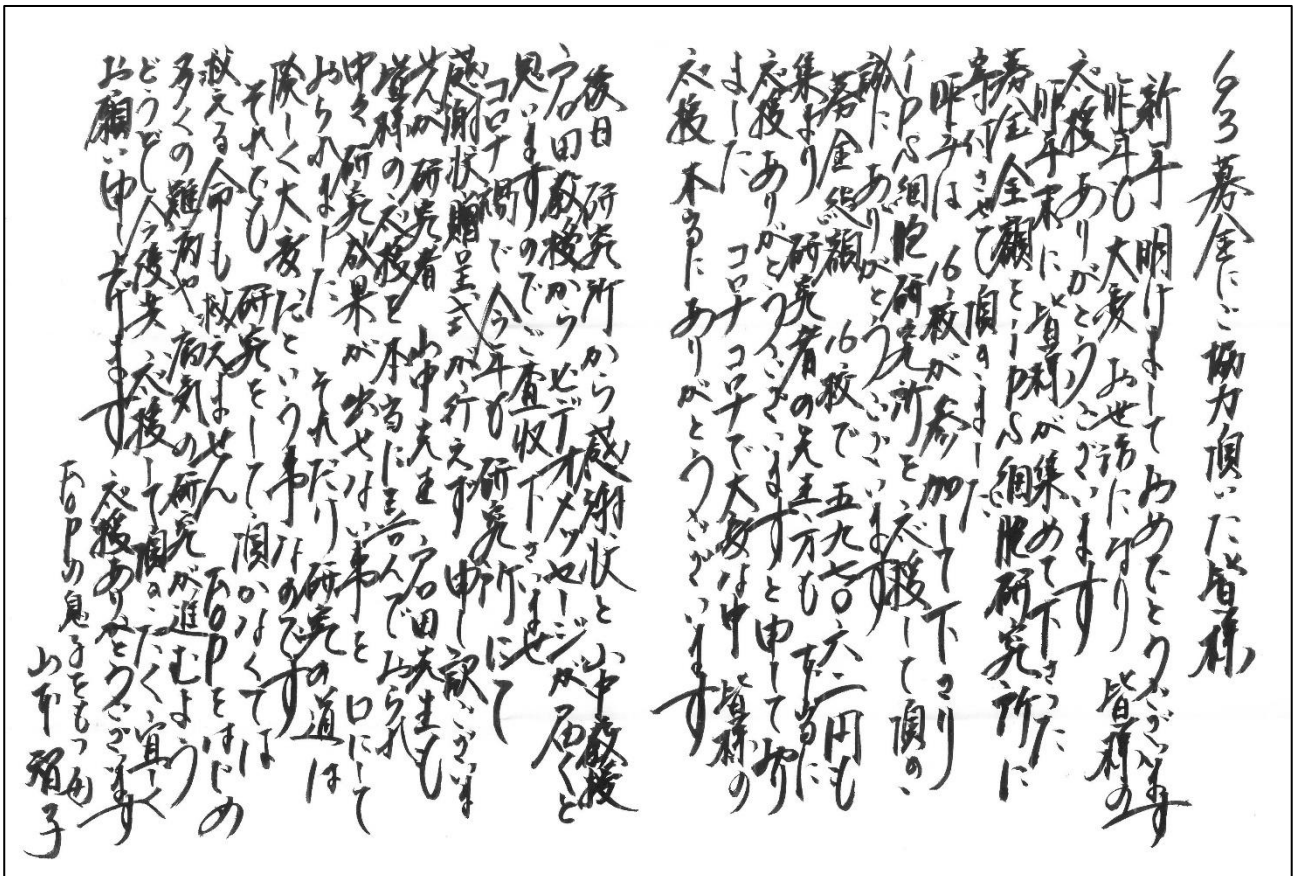 募金にご協力頂いた皆様
新年明けましておめでとうございます
昨年も大変お世話になり 皆様の
応援 ありがとうございます
昨年末に皆様が集めて下さった
募金全額をiPS細胞研究所に
寄付させて頂きました
昨年は 16校が参加して下さり
iPS細胞研究所を応援して頂き
誠にありがとうございます
募金総額 16校で 五九七〇六二円も
集まり 研究者の先生方も 本当に
応援ありがとうございますと申しており
ました コロナ コロナで大変な中 皆様の
応援 本当にありがとうございます
後日 研究所から感謝状と山中教授
戸口田教授からビデオメッセージが届くと
思いますのでご査収下さいませ
コロナ禍で今年も 研究所にて
感謝状贈呈式が行えず 申し訳ございま
せんが 研究者 山中先生 戸口田先生も
皆様の応援を本当に喜んでおられ
中々 研究成果が出せない事を口にして
おられました それだけ 研究の道は
険しく大変だという事なのです
それでも 研究をして頂かなくては
救える命も救えません FOPをはじめ
多くの難病や 病気の研究が進むよう
どうぞ 今後共 応援して頂きたく宜しく
お願い申し上げます 応援ありがとうございます
FOPの息子をもつ母
山本 子